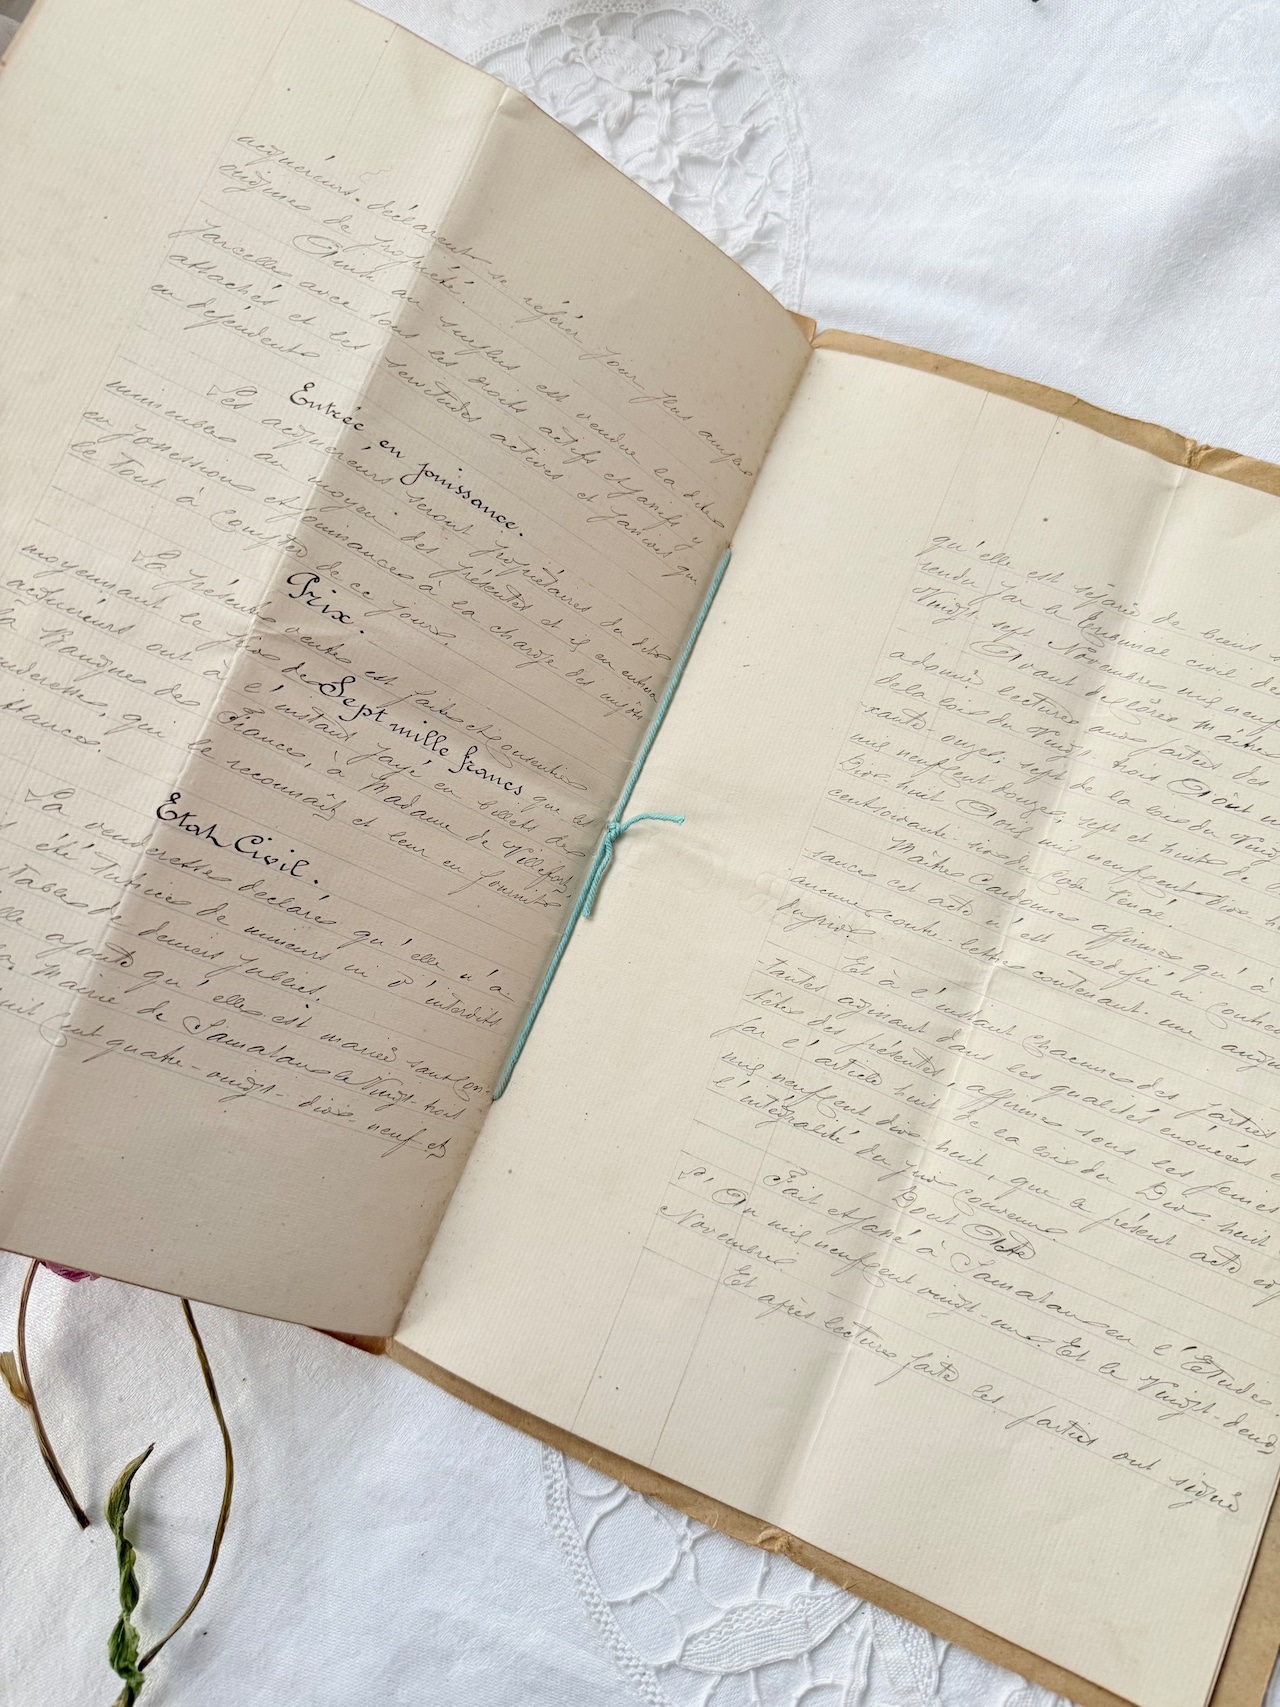 acquéreurs déclarent se référer pour plus amples
origines de propriété.
Ainsi au surplus est vendue la dites
parcelles avec tous les droits actifs et passifs y
attachés et les servitudes actives et passives qui
en dépendent
Entrée en jouissance.
Les acquéreurs seront propriétaires du dits
immeubles au moyen des présentes et ils en
en possession et jouissances à la charge des impôts
le tout à Compter de ce jour.
Prix.
La présente ventes est faites et consenties
moyennant le prix de Sept mille francs que les
acquéreurs ont à l'instant payé en billets des
la Banques des Frances, à Madame de Villefort,
venderesses, qui le reconnaît et leur en fournit
quittances.
Etat Civil.
La venderesses déclares qu'elle n'a
été tutrices de mineurs ni d'interdits
comptables de deniers publics.
elle ajoute qu'elles est mariée sans Con-
la Mairie de Samatan le Vingt-huit
huit Cent quatre-vingt-dix-neuf et
qu'elle est séparée de biens
rendu par le Tribunal civil de
Vingt sept Novembres mil neuf
Avant de clore, Maître
a donné lectures aux parties des
de la loi du Vingt trois Août
-xante-onze; sept de la loi du
mil neuf cent douze, sept et huit
Dix huit Avril mil neuf cent dix-h
cent soixante six du Code Pénal.
Maître Cadours affirme qu'à
sances cet acte n'est modifié ni contre
aucune contre-lettre contenant une augm
du prix.
Et à l'instant chacunes des parties
-tantes agissant dans les qualités énoncées
têtes des présentes, affirme sous les peines
par l'article huit de la loi du Dix huit
mil neuf cent dix huit, que le présent acte
l'intégralité du prix convenu.
Dont Acte
Fait et passé à Samatan en l'Etudes
L'An mil neuf cent vingt-un. Et le Vingt-deux
Novembres
Et après lectures faite les parties ont signé